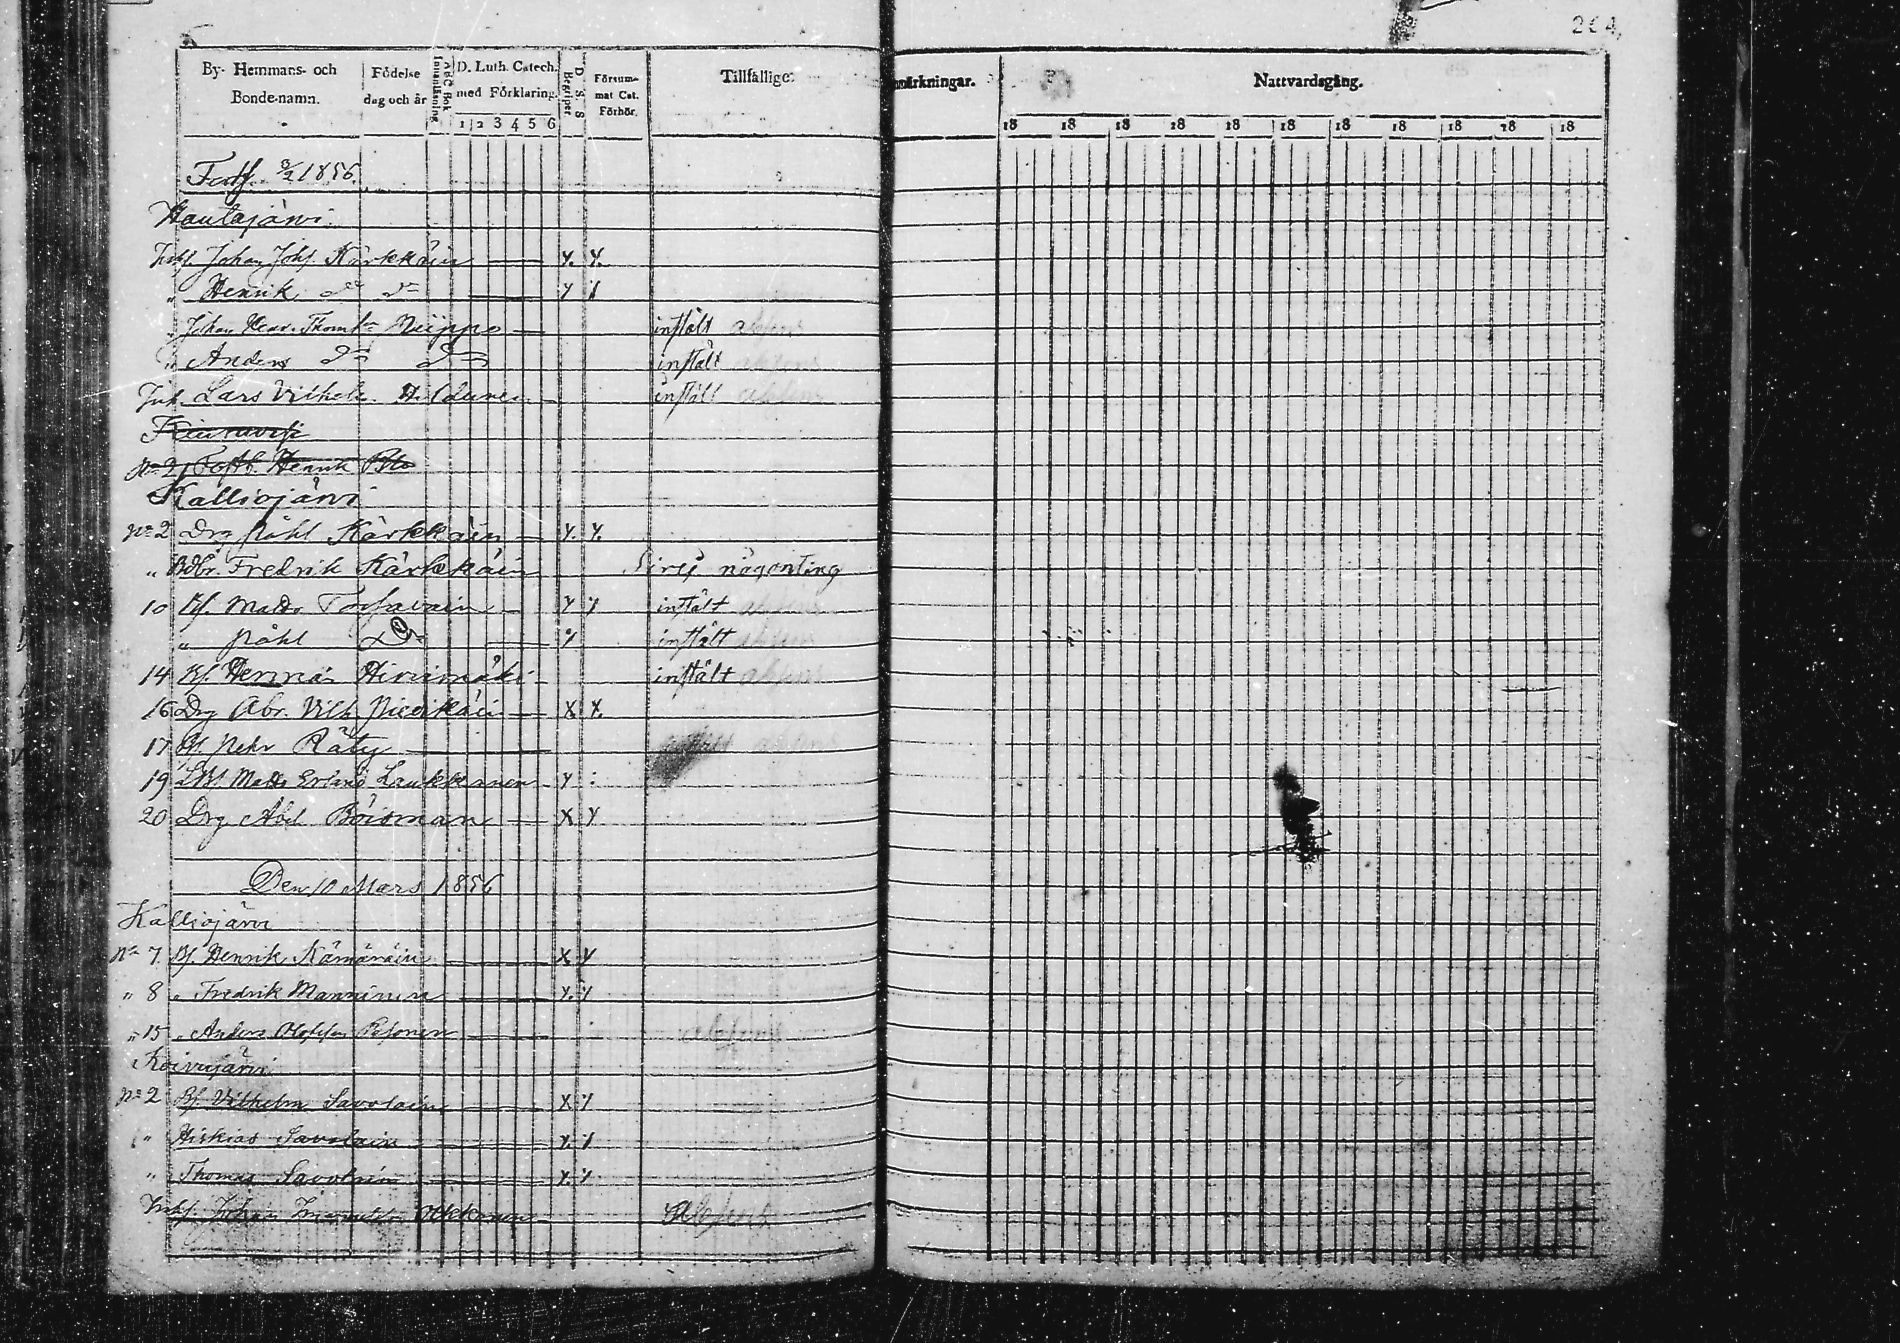 264,
By- Hemmans- och Bonde-namn.
Födelse dag och år
Innanläsning
ABC Bok
D. Luth. Catech. med Förklaring.
1 2 3 4 5 6
Begriper
D. S. S
Försummat Cat. Förhör.
Tillfällige
märkningar.
Nattvardsgång.
18 18 18 18 18 18 18 18 18 18 18
1856.
Hautajärvi
Johan Johs. Kärkkäin x. x.
" Henrik Do Do x x
" Johan Henr. Thoms. Niippo inställt absens
" Anders Do Do inställt absens
Inh. Lars Vilhelm inställt absens
No 2 Henrik
Kalliojärvi
No 2 Drg Påhl Kärkkäin x. x.
" Fredrik Kärkkäin någonting
10 Bf. Matts x x inställt absens
" Påhl Do x inställt absens
14 Bf. Herman Hirvimäki inställt absens
16 Drg Abr. Vilh. x x.
17 Bf. Pehr Räty absens
19 Matts Erland Laukkanen x :
20 Drg Abel Böisman x x
Den 10 Mars 1856
Kalliojärvi
No 7. Bf. Henrik Kämäräin x x
" 8 " Fredrik Manninen x. x
" 15 " Anders Olofsson absens
Koivujärvi
No 2 Bf. Vilhelm Savolain x x
" Hiskias Savolain x. x
" Thomas Savolain x. x
Johan Absens